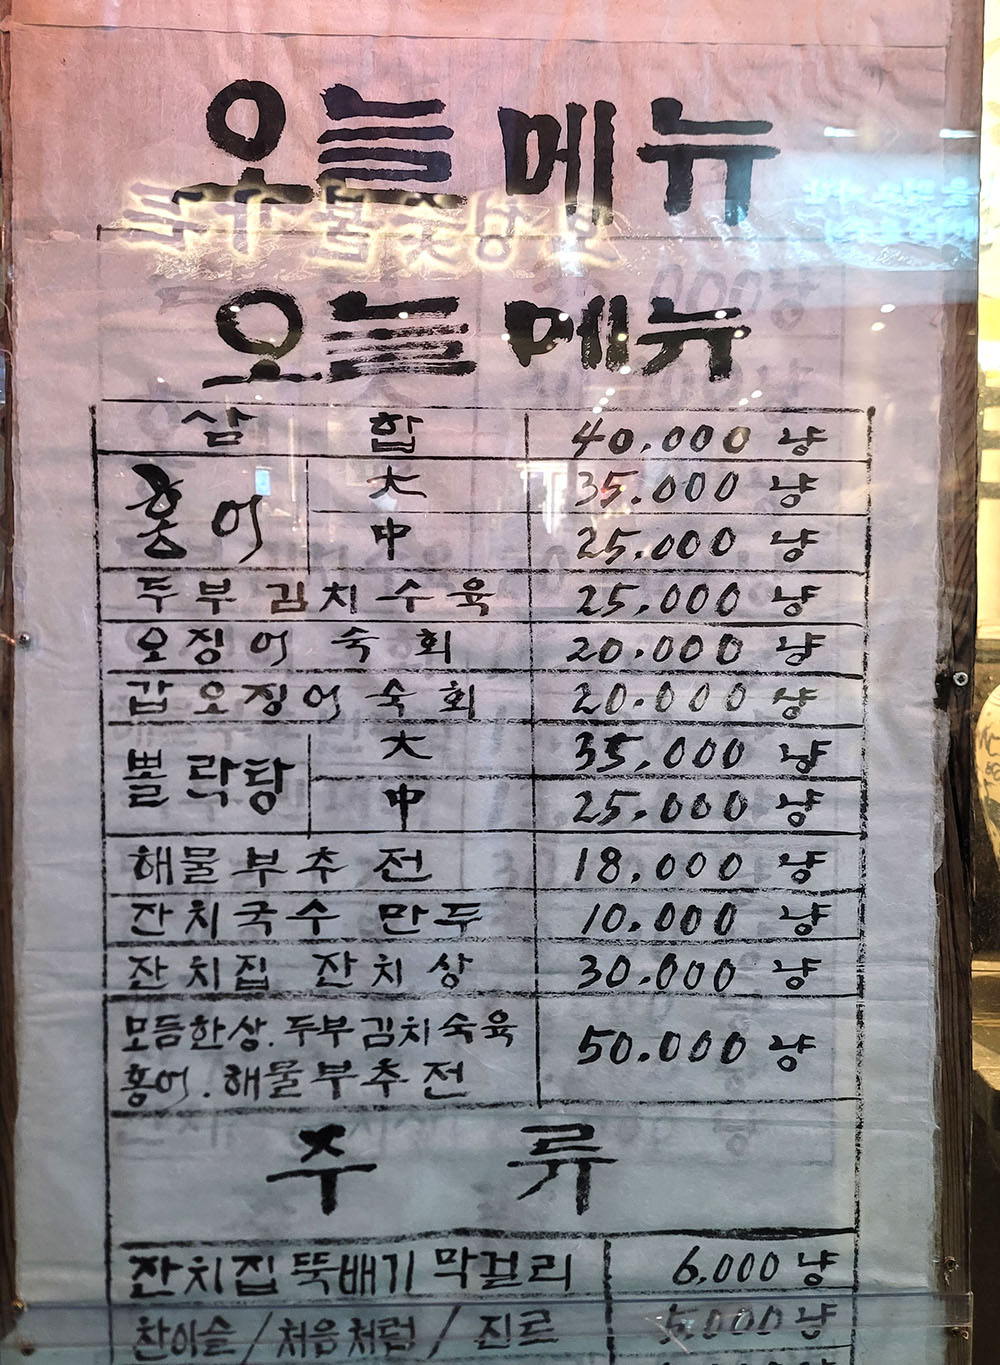 오늘 메뉴
오늘 메뉴
삼 합 40.000 냥
홍어 大 35.000 냥
中 25.000 냥
두부 김치 수육 25,000 냥
오징어 숙회 20.000 냥
갑오징어 숙회 20.000 냥
뽈락탕 大 35,000 냥
中 25.000 냥
해물부추전 18,000 냥
잔치국수 만두 10.000 냥
잔치집 잔치상 30.000 냥
모듬한상. 두부김치숙육
홍어. 해물부추전 50.000 냥
주 류
잔치집 뚝배기 막걸리 6.000 냥
찬이슬 / 처음처럼 / 진르 5.000 냥